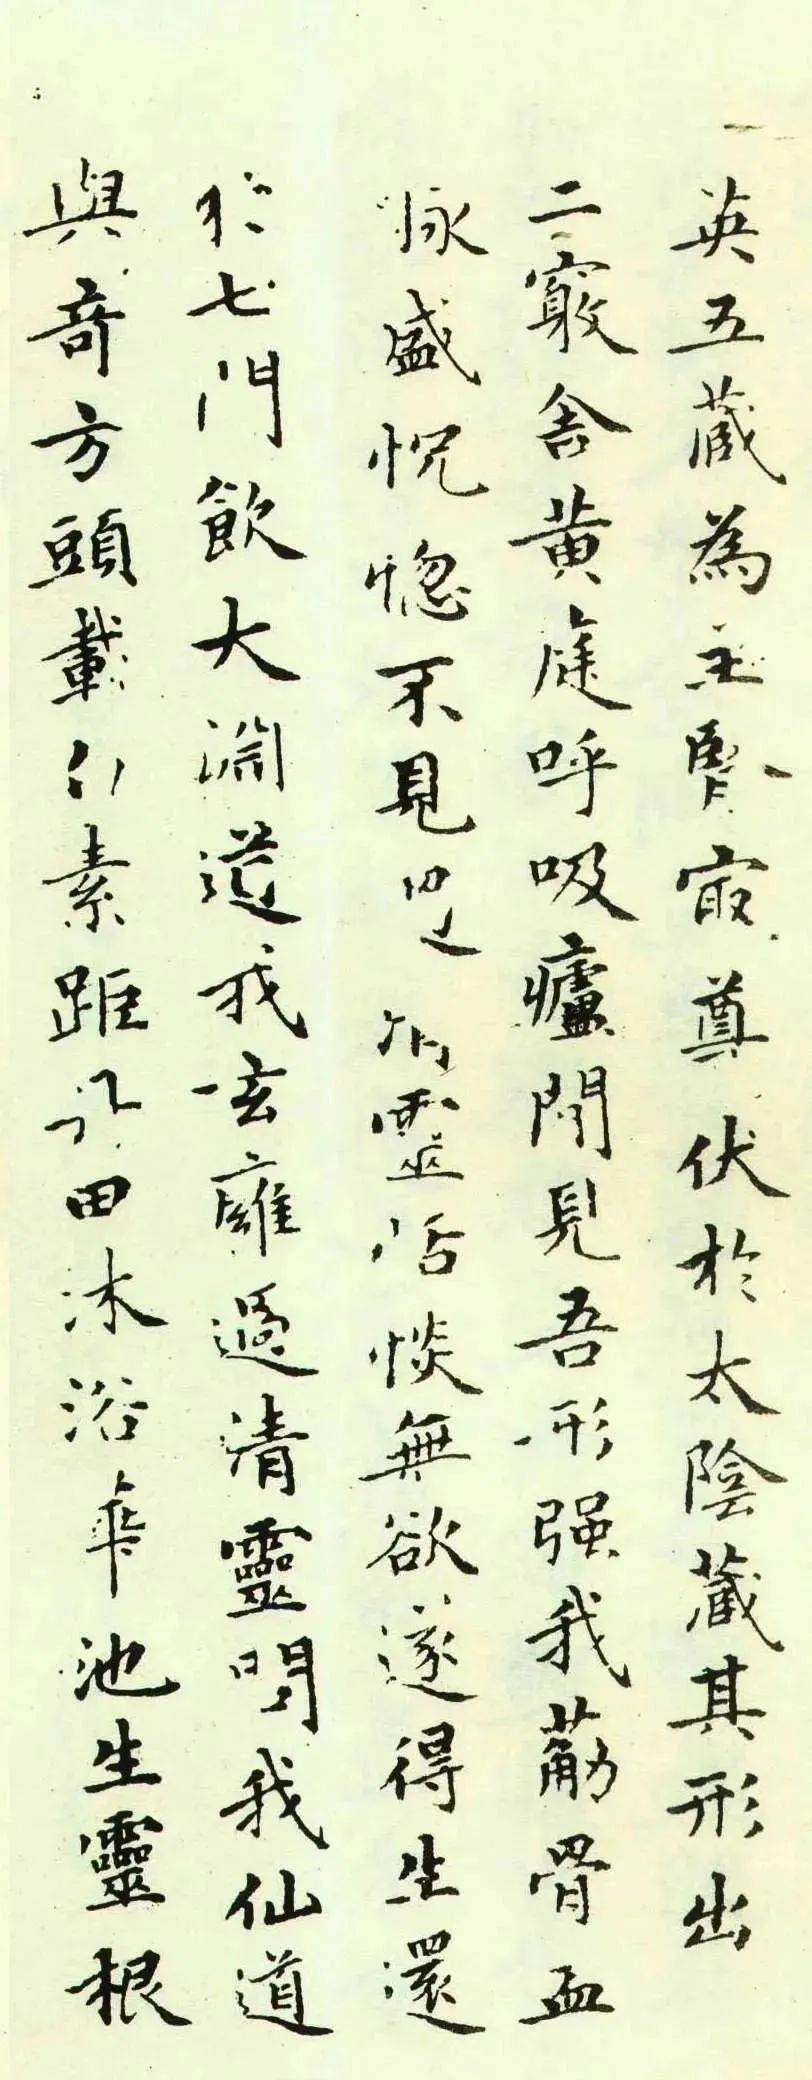 英五藏為主腎㝡尊伏於太陰藏其形出
二竅舍黃庭呼吸廬間見吾形强我筋骨血
脉盛怳惚不見過清靈恬惔無欲遂得生還
於七門飲大淵道我玄雍過清靈問我仙道
與奇方頭載白素距丹田沐浴華池生靈根